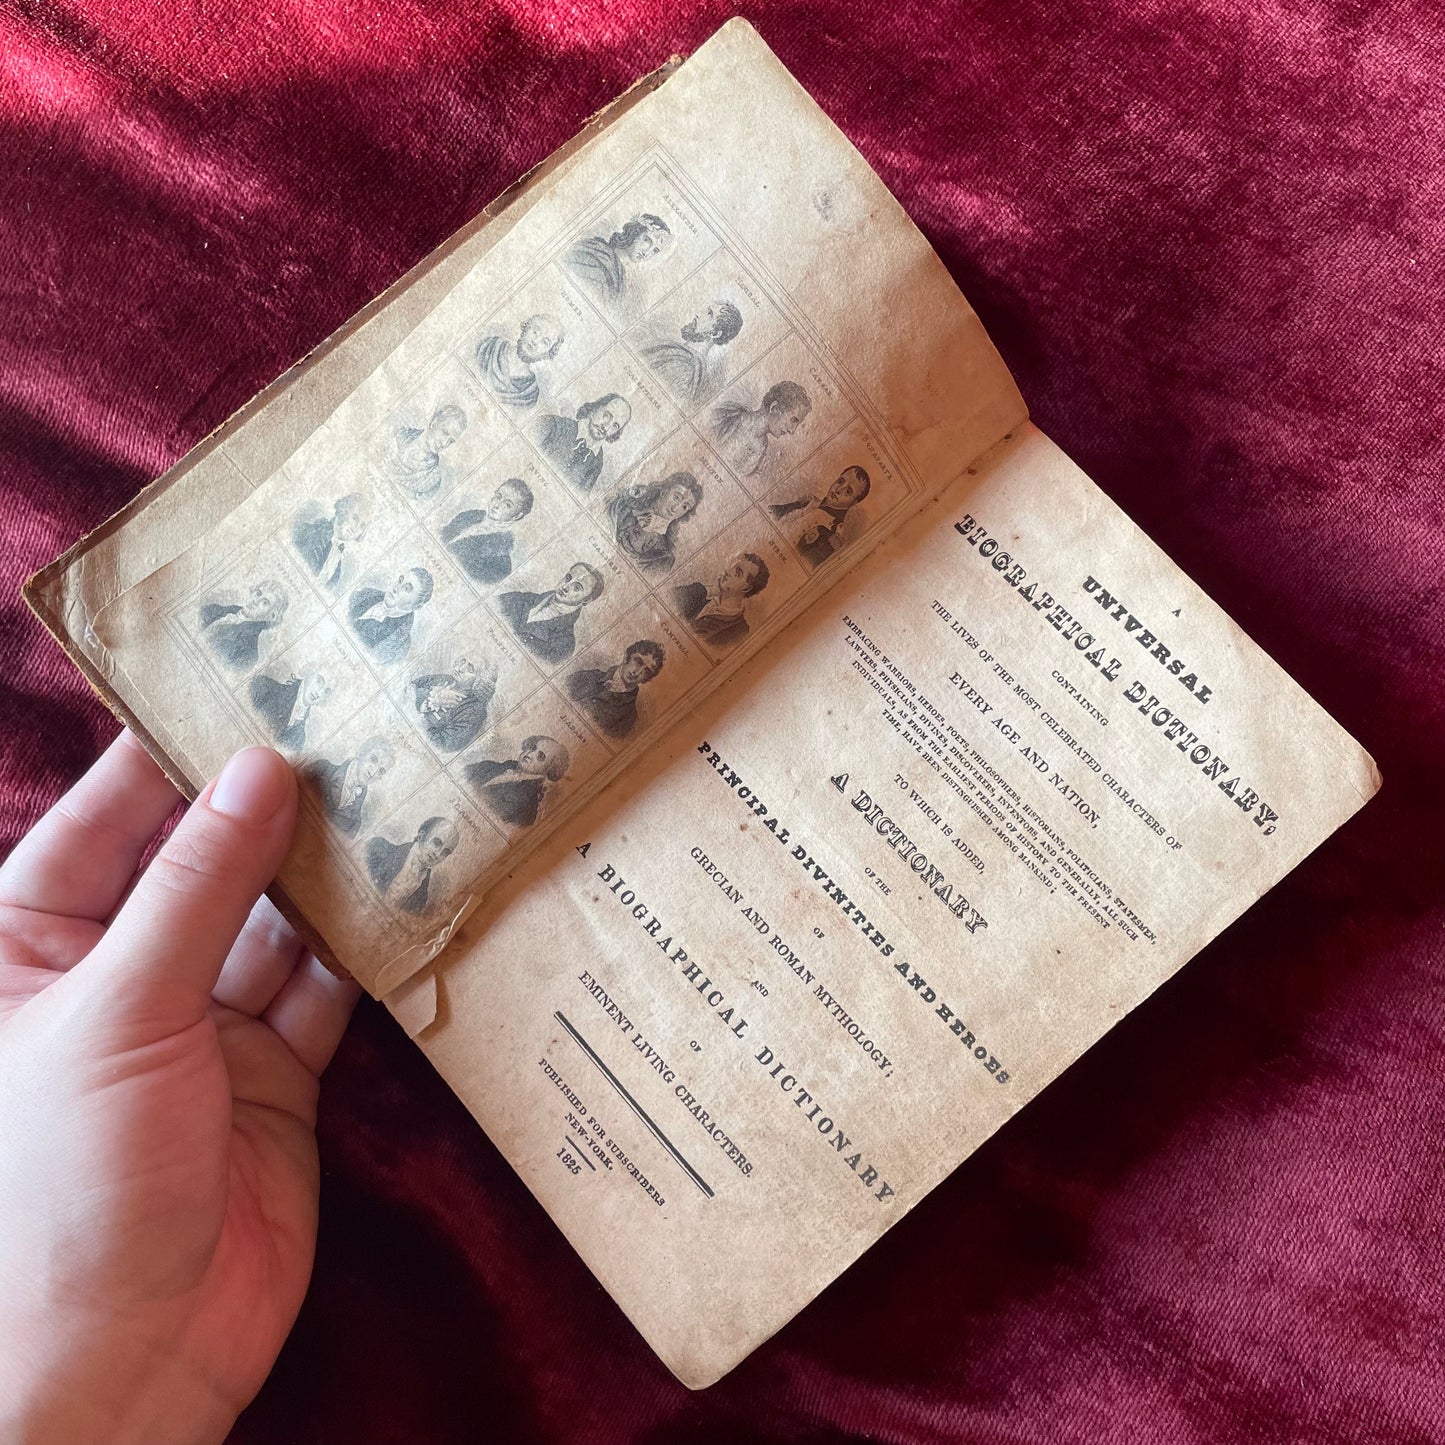 ALEXANDER.
HANNIBAL.
CAESAR.
BUONAPARTE.
HOMER.
SHAKSPEARE
MILTON
BYRON.
IRVING.
CHALMERS.
CAMPBELL.
FRANKLIN.
A
UNIVERSAL
BIOGRAPHICAL DICTIONARY,
CONTAINING
THE LIVES OF THE MOST CELEBRATED CHARACTERS OF
EVERY AGE AND NATION,
EMBRACING WARRIORS, HEROES, POETS, PHILOSOPHERS, HISTORIANS, POLITICIANS, STATESMEN,
LAWYERS, PHYSICIANS, DIVINES, DISCOVERERS, INVENTORS, AND GENERALLY, ALL SUCH
INDIVIDUALS, AS FROM THE EARLIEST PERIODS OF HISTORY TO THE PRESENT
TIME, HAVE BEEN DISTINGUISHED AMONG MANKIND;
TO WHICH IS ADDED,
A DICTIONARY
OF THE
PRINCIPAL DIVINITIES AND HEROES
OF
GRECIAN AND ROMAN MYTHOLOGY;
AND
A BIOGRAPHICAL DICTIONARY
OF
EMINENT LIVING CHARACTERS.
PUBLISHED FOR SUBSCRIBERS
NEW-YORK.
1825